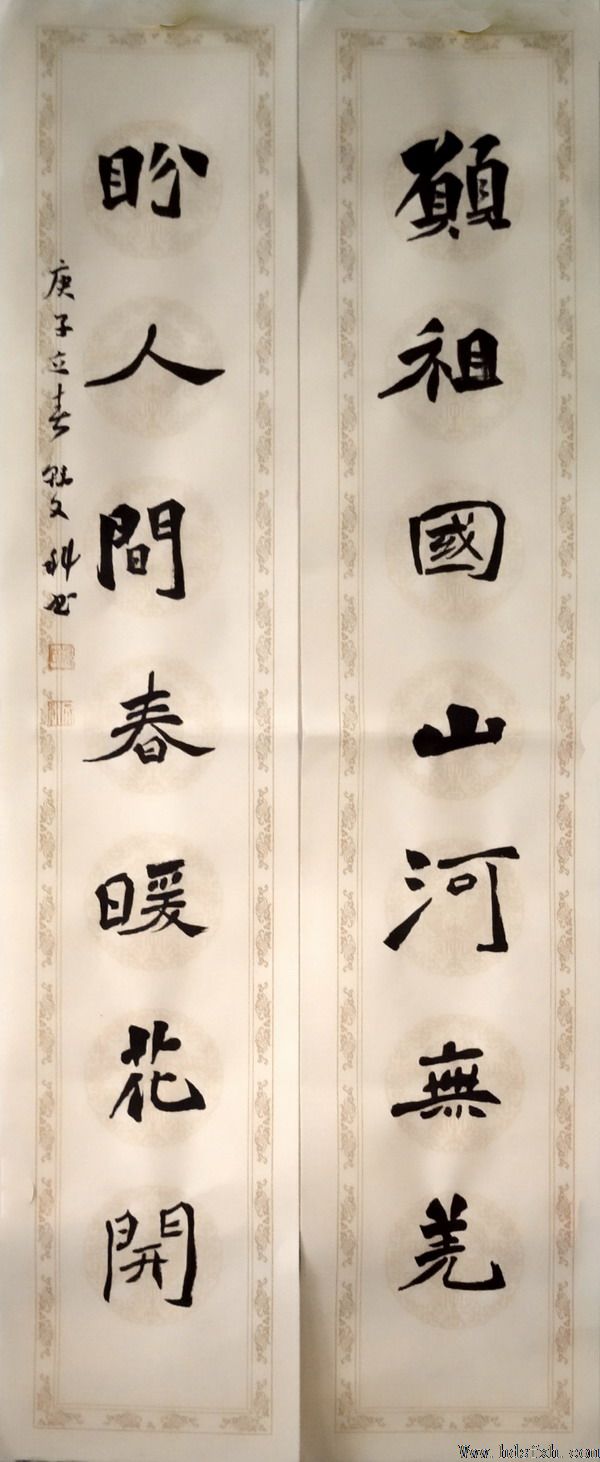 願祖國山河無羌
盼人間春暖花開
庚子立春 文科书
Www.hbsfxh.com